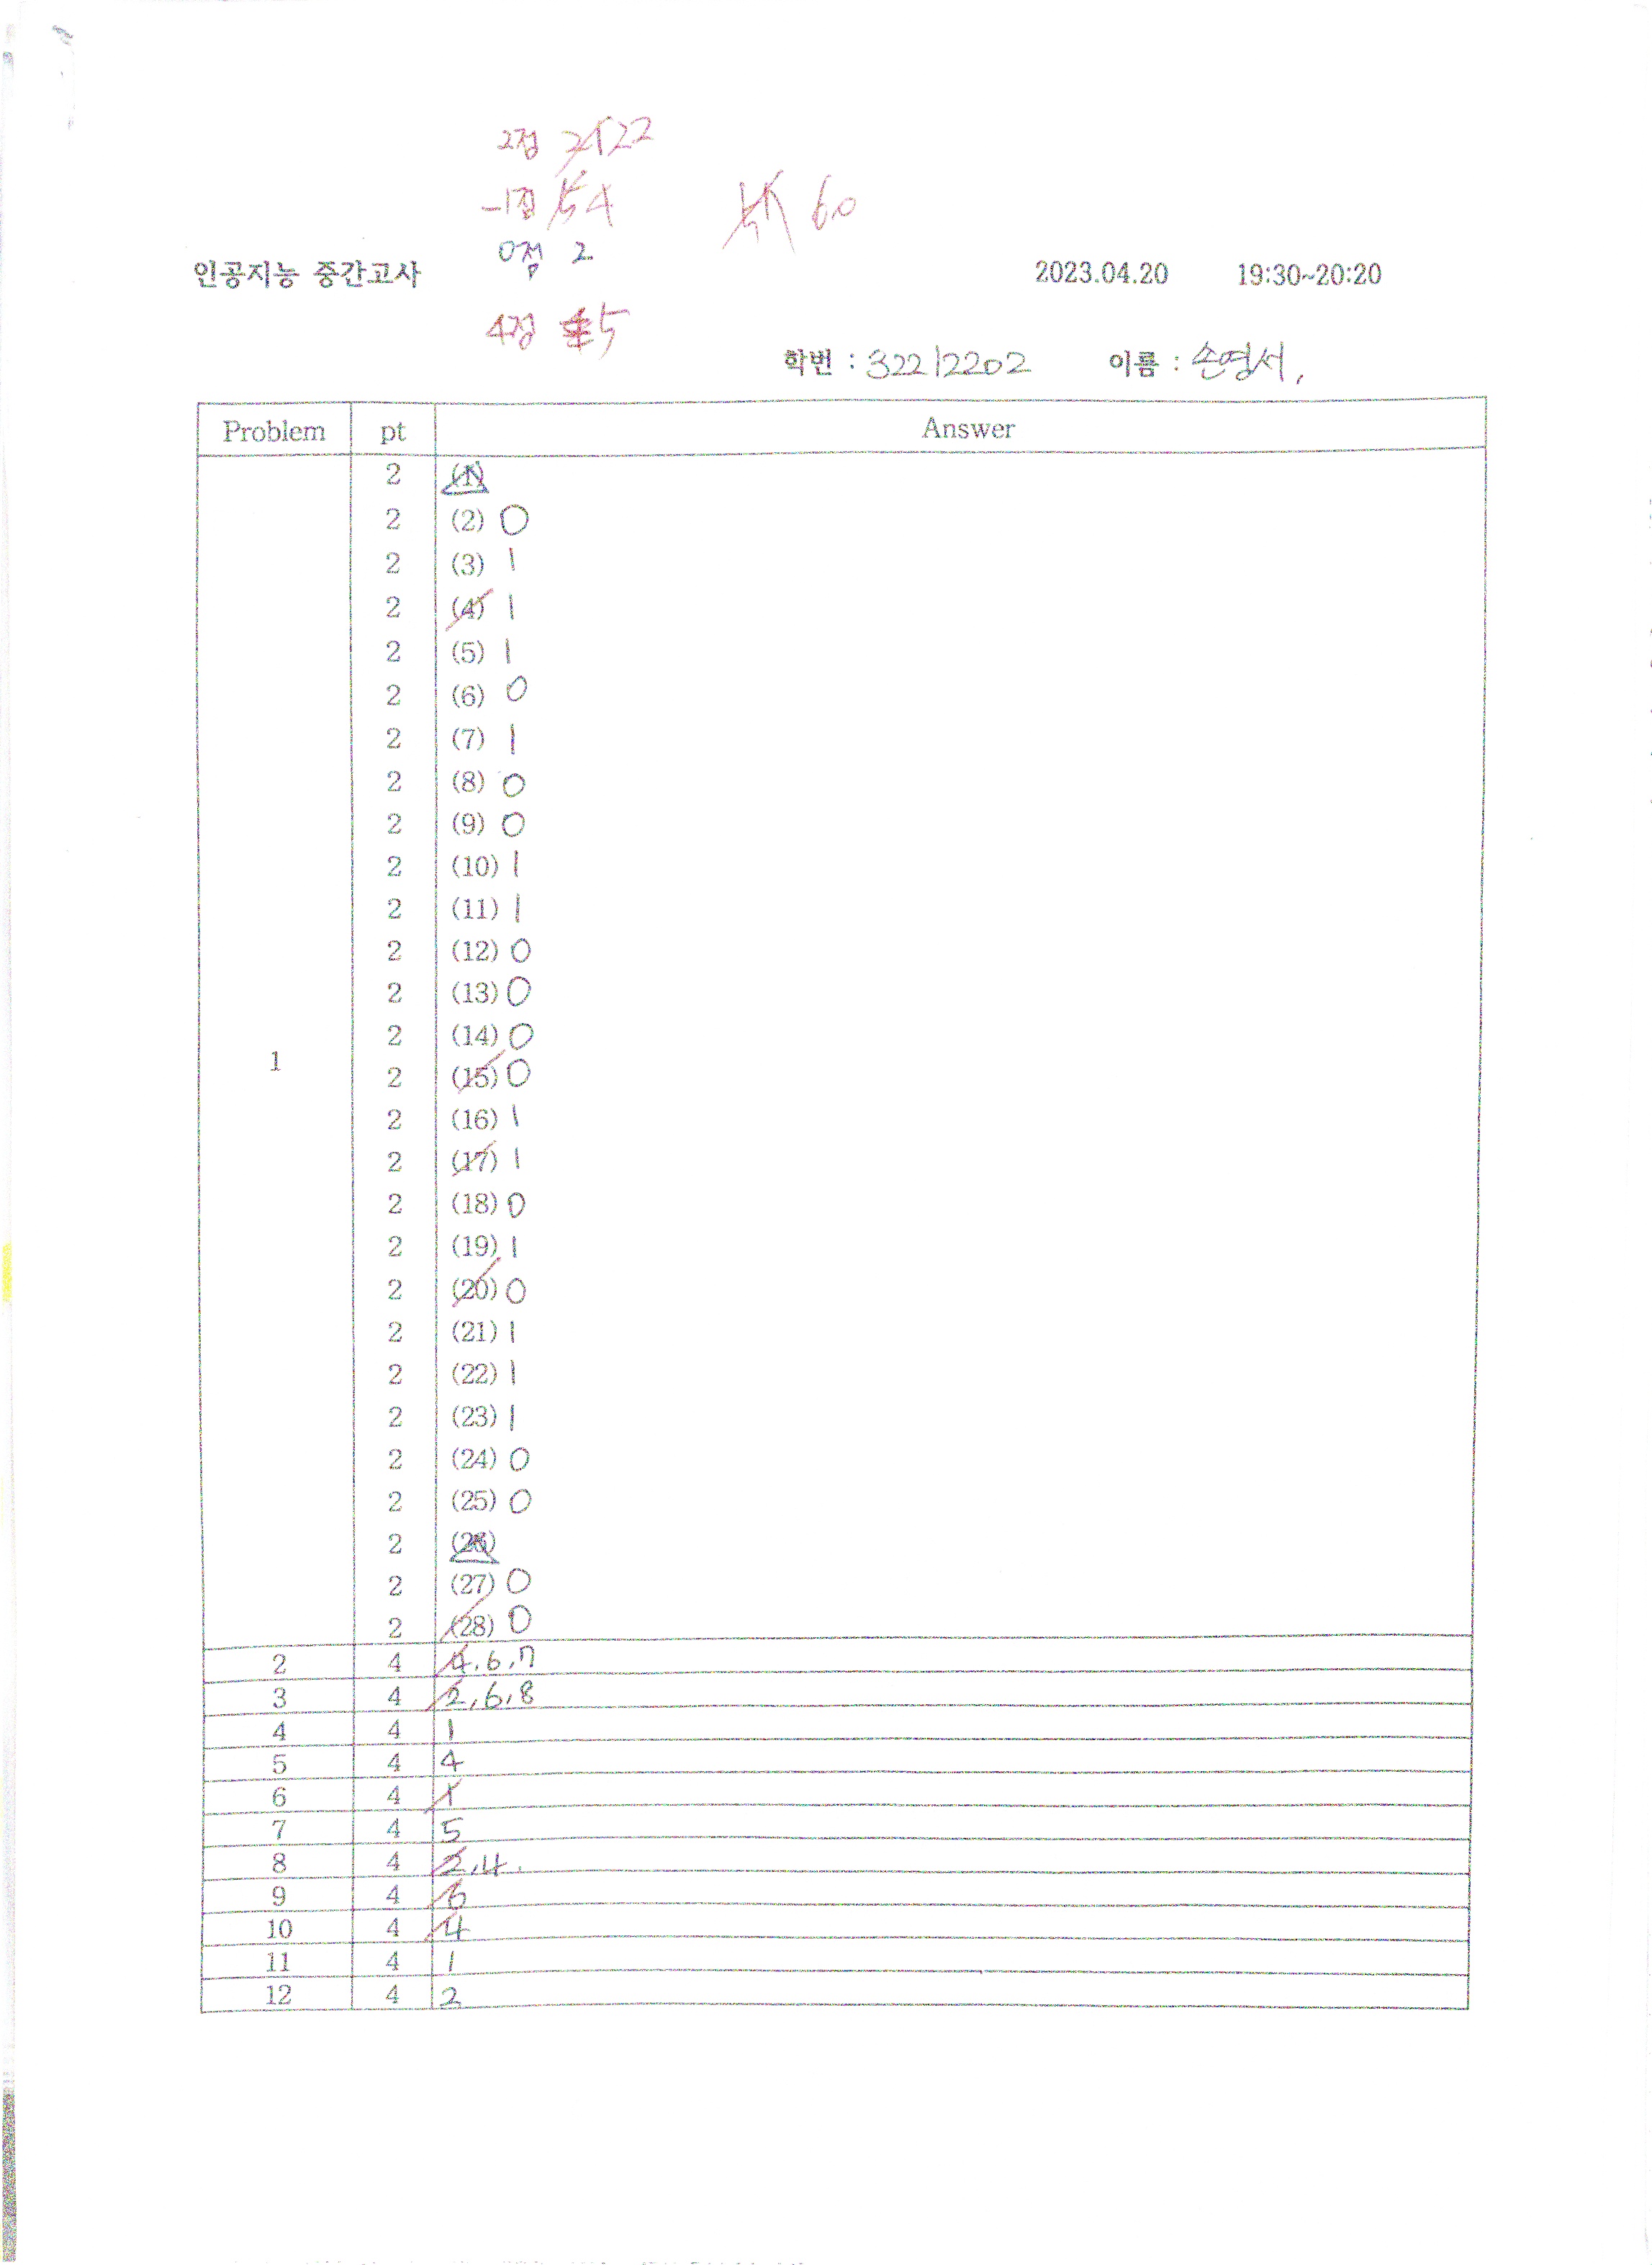 2점 22
-1점 4
60
0점 2
인공지능 중간고사 2023.04.20 19:30~20:20
4점 5
학번 : 32212202 이름 : 손영서
Problem pt Answer
2 (1)
2 (2) 0
2 (3) 1
2 (4) 1
2 (5) 1
2 (6) 0
2 (7) 1
2 (8) 0
2 (9) 0
2 (10) 1
2 (11) 1
2 (12) 0
2 (13) 0
2 (14) 0
1
2 (15) 0
2 (16) 1
2 (17) 1
2 (18) 0
2 (19) 1
2 (20) 0
2 (21) 1
2 (22) 1
2 (23) 1
2 (24) 0
2 (25) 0
2 (26)
2 (27) 0
2 (28) 0
2 4 4, 6, 7
3 4 2, 6, 8
4 4 1
5 4 4
6 4 1
7 4 5
8 4 2, 4.
9 4 6
10 4 4
11 4 1
12 4 2